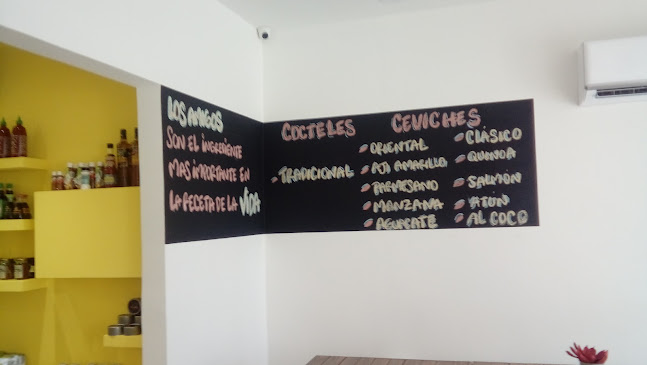 LOS AMIGOS
SON EL INGREDIENTE
MAS IMPORTANTE EN
LA RECETA DE LA VIDA
COCTELES
TRADICIONAL
CEVICHES
ORIENTAL
AJI AMARILLO
PARMESANO
MANZANA
AGUACATE
CLÁSICO
QUINOA
SALMÓN
ATÚN
AL COCO